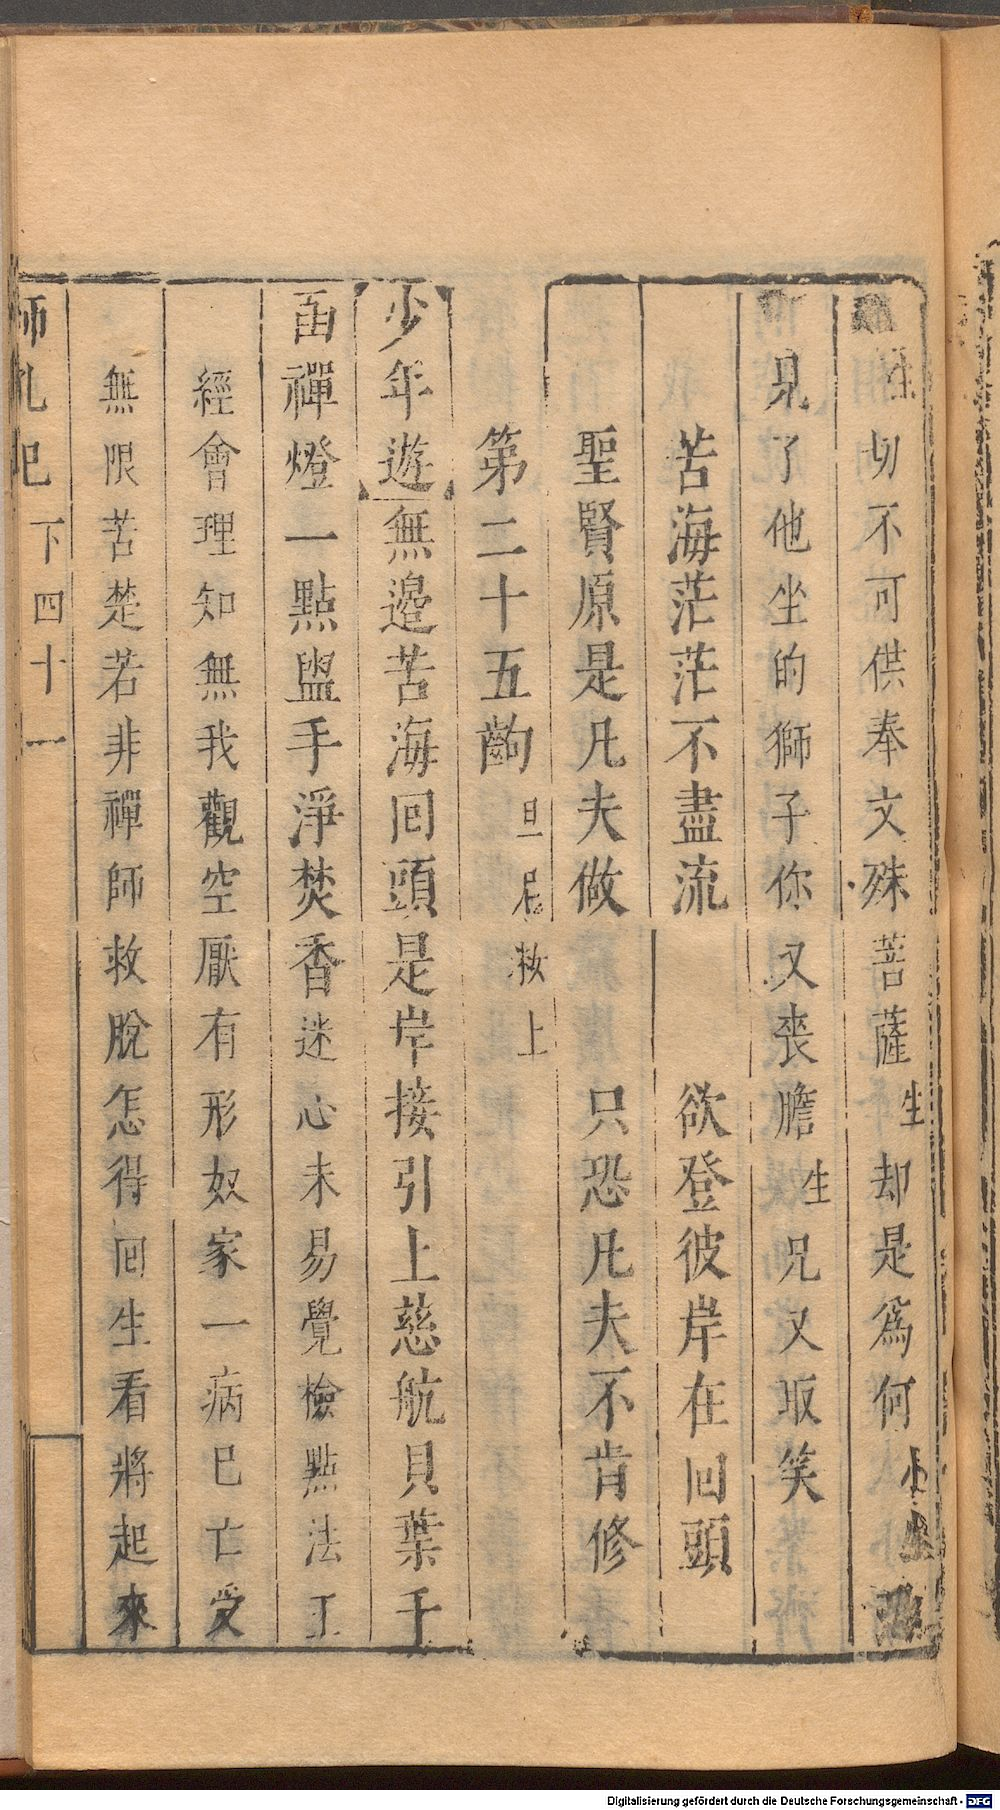 生切不可供奉文殊菩薩生却是爲何小
見了他坐的獅子你又丧膽生兄又取笑
苦海茫茫不盡流 欲登彼岸在回頭
聖賢原是凡夫做 只恐凡夫不肯修
第二十五齣 旦尼救上
少年遊無邉苦海回頭是岸接引上慈航貝葉千
函禪燈一點盥手淨焚香迷心未易覺檢點法王
經會理知無我觀空厭有形奴家一病巳亡受
無限苦楚若非禪師救脫怎得回生看將起來
師 記 下 四十一
Digitalisierung gefördert durch die Deutsche Forschungsgemeinschaft - DFG